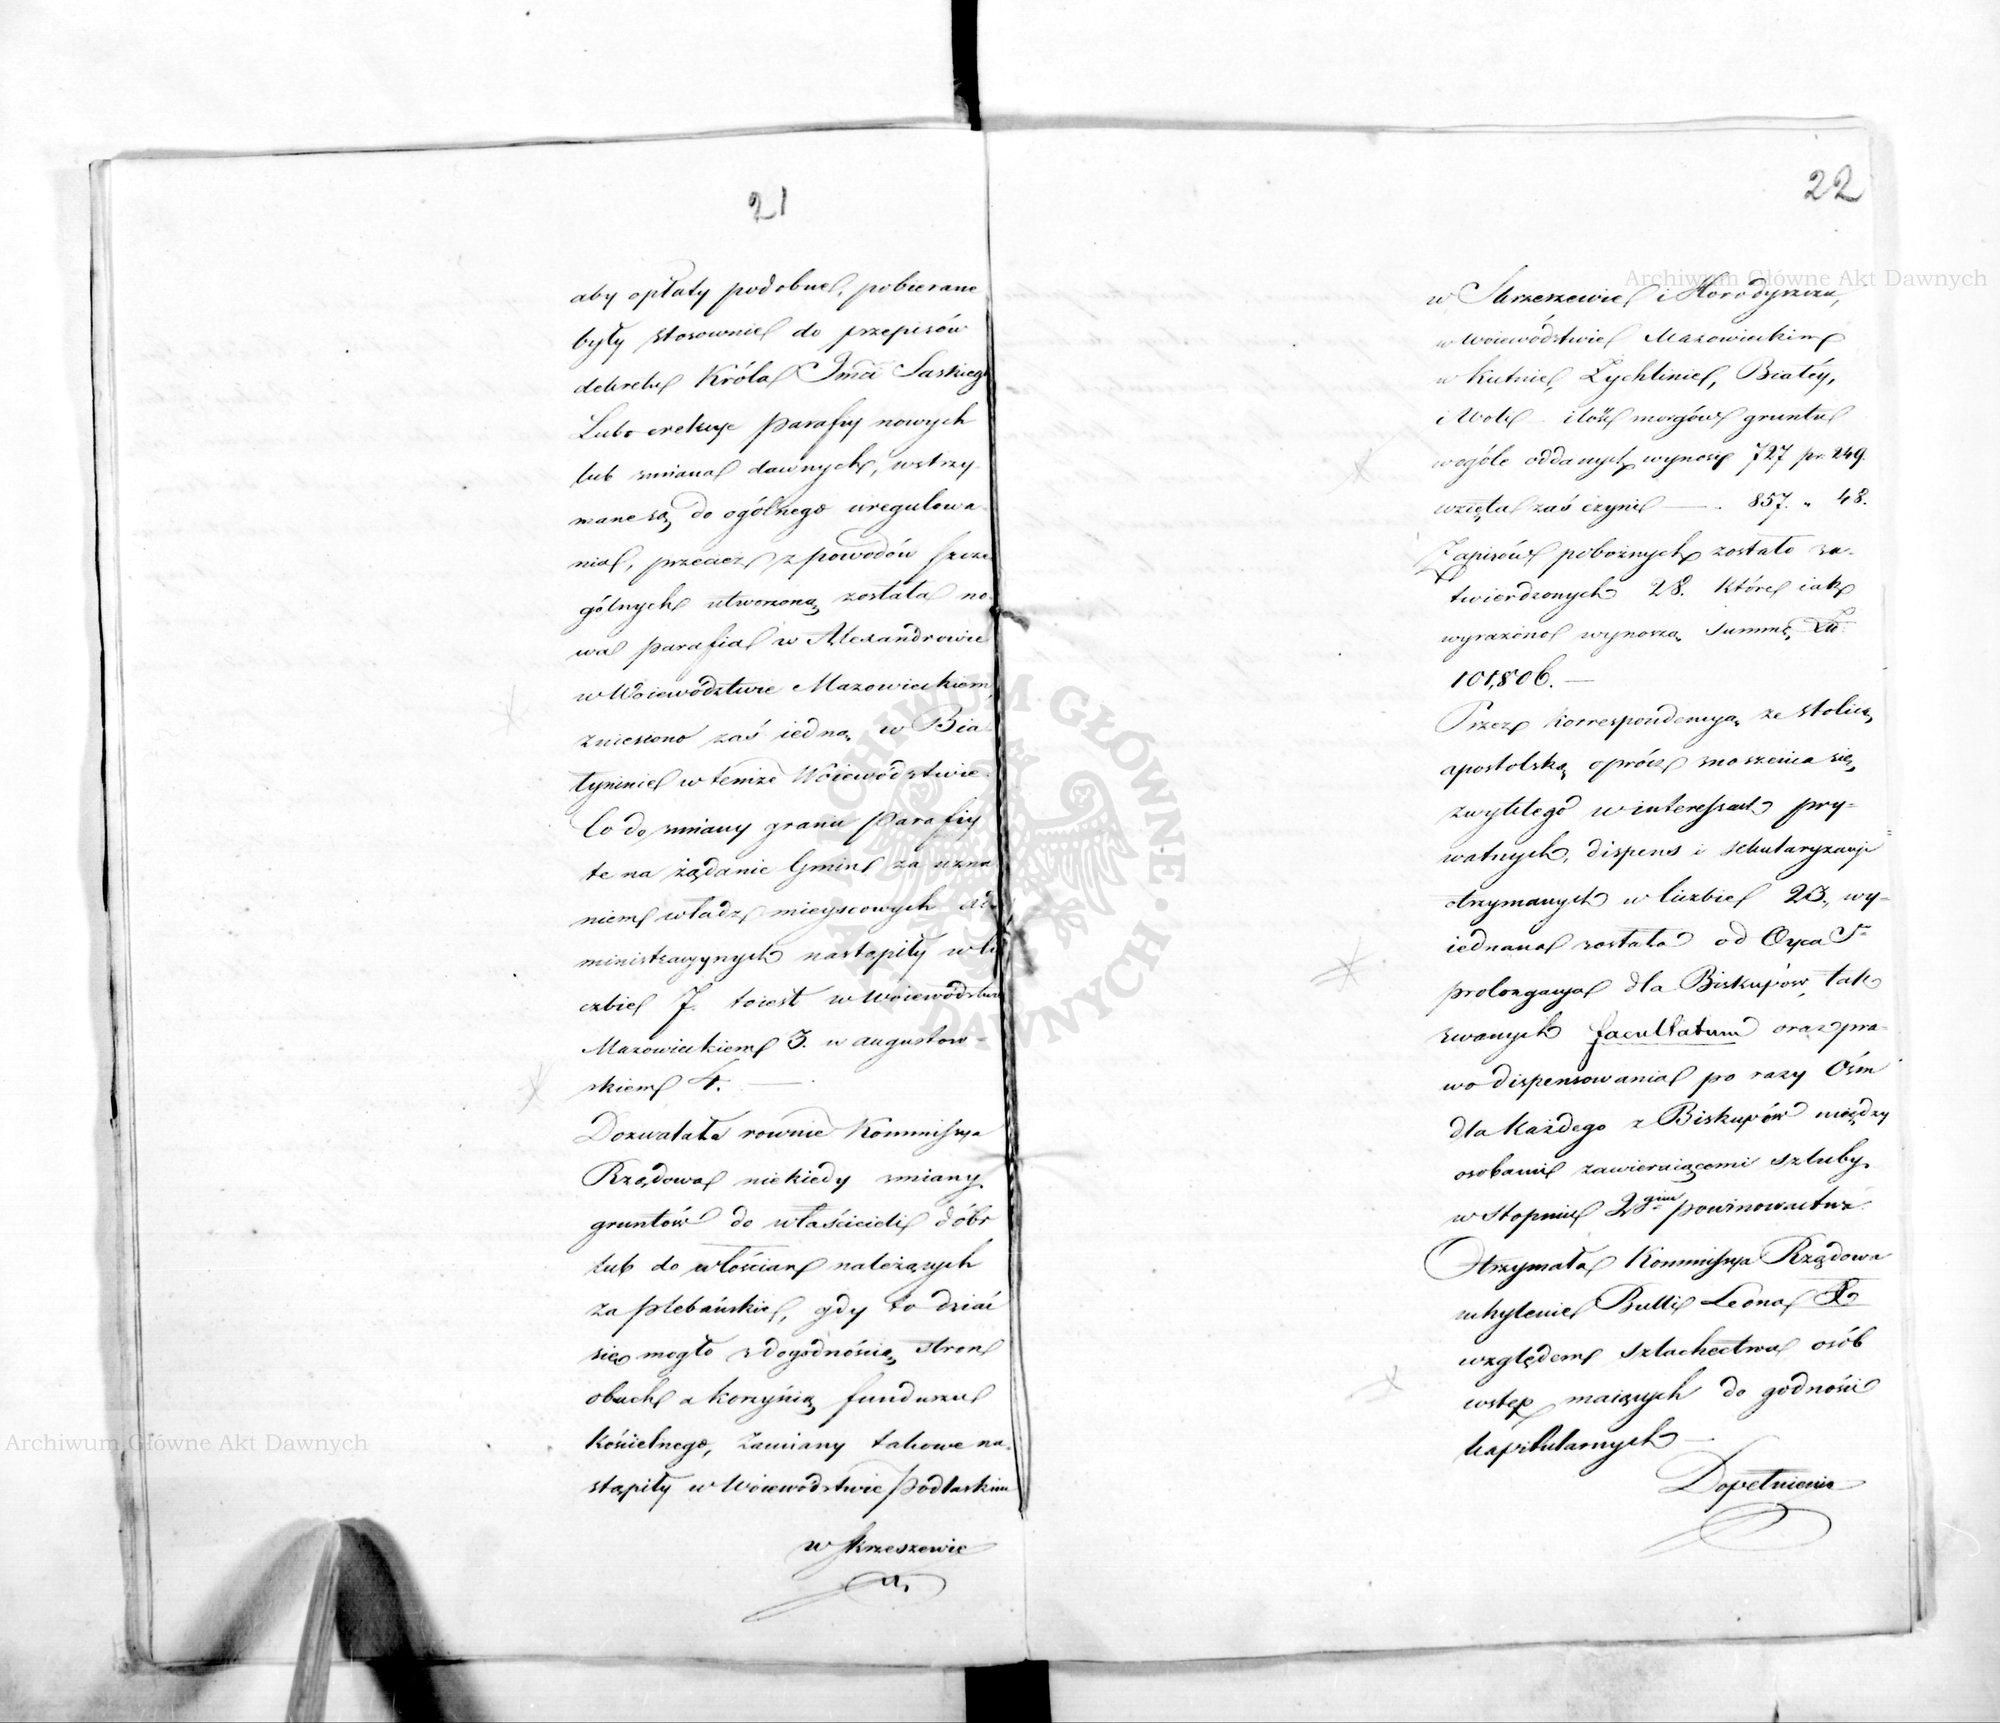 21
aby opłaty podobne, pobierane
były stosownie do przepisów
dekretu Króla Jmci Saskiego
Lubo erekcye parafiy nowych
lub zmiana dawnych, wstrzy-
mane są do ogólnego uregulowa-
nia, przecież z powodów szcze
gólnych utworzoną została no
wa parafia w Alexandrowie
w Woiewództwie Mazowieckiem,
zniesiono zaś iedną w Bia
łyninie w temże Woiewództwie.
Co do zmiany granic parafiy
te na żądanie Gmin za uzna
niem władz mieyscowych ad
ministracyynych nastąpiły w li
czbie 7. toiest w Woiewództwie
Mazowieckiem 3. w augustow-
skiem 4. —
Dozwalała rownie Kommissya
Rządowa niekiedy zmiany
gruntów do właścicieli dóbr
lub do włościan należących
za plebańskie, gdy to dziać
się mogło z dogodnością stron
obuch a korzyścią funduszu
Kościelnego, Zamiany takowe na-
stąpiły w Woiewództwie Podlaskim
w Skrzeszewie
22
w Skrzeszewie i Horodyszczu,
w Woiewództwie Mazowieckim
w Kutnie, Żychlinie, Białéy,
i Woli ilość morgów gruntu
wogóle oddanych wynosi 727 pr. 249.
wzięta zaś czyni — 857. „ 48.
Zapisów pobożnych zostało za-
twierdzonych 28. które iak
wyrażono wynoszą Summę Zł:
101,806. —
Przez korrespondencyą ze stolicą
apostolską oprócz znoszenia się
zwykłego w interessach pry-
watnych, dispens i sekularyzacji
otrzymanych w liczbie 23., wy-
iednana została od Oyca S°
prolongacya dla Biskupów, tak
zwanych facultatum oraz pra-
wo dispensowania po razy Ośm
dla każdego z Biskupów między
osobami zawieraiącemi szluby
w Stopniu 2gim powinowactwa.
Otrzymała Kommissya Rządowa
uchylenie Bulli Leona X
względem szlachectwa osób
wstęp maiących do godności
kapitularnych —
Dopełnienie
Archiwum Główne Akt Dawnych
Archiwum Główne Akt Dawnych
ARCHIWUM GŁÓWNE AKT DAWNYCH